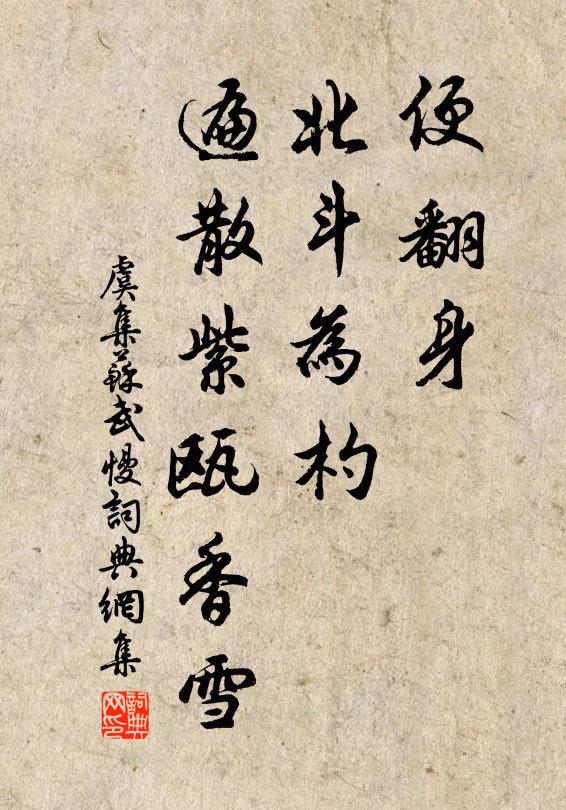 便翻身
北斗為杓
遍散紫瓯香雪
虞集蘇武慢詞典網集
詞典网印